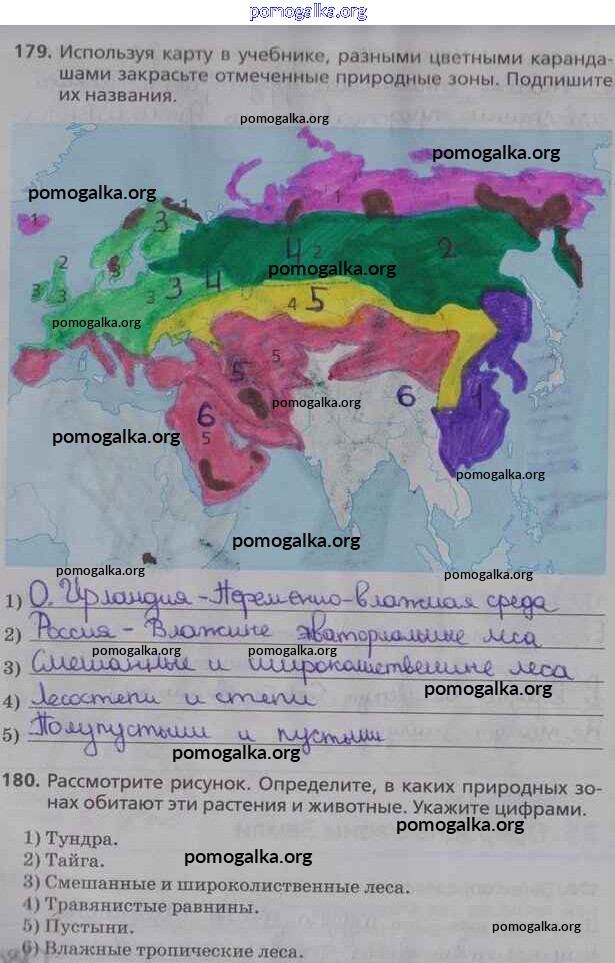 pomogalka.org
179. Используя карту в учебнике, разными цветными каранда-
шами закрасьте отмеченные природные зоны. Подпишите
их названия.
pomogalka.org
pomogalka.org
pomogalka.org
1
1
1
3
2
3
4
2
2
pomogalka.org
3
3
3
3
4
4
5
pomogalka.org
5
5
6
pomogalka.org
6
5
1
pomogalka.org
pomogalka.org
pomogalka.org
pomogalka.org
pomogalka.org
1) О. Ирландия - Переменно-влажная среда
2) Россия - Влажние экваториальние леса
pomogalka.org
pomogalka.org
3) Смешанные и широколиственние леса
pomogalka.org
4) Лесостепи и степи
5) Полупустыни и пустыни
pomogalka.org
180. Рассмотрите рисунок. Определите, в каких природных зо-
нах обитают эти растения и животные. Укажите цифрами.
pomogalka.org
1) Тундра.
2) Тайга.
pomogalka.org
3) Смешанные и широколиственные леса.
4) Травянистые равнины.
5) Пустыни.
pomogalka.org
6) Влажные тропические леса.